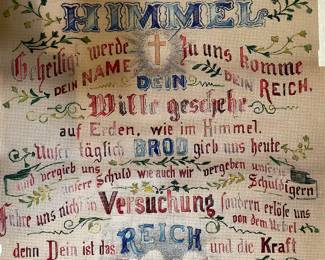 HIMMEL
Geheiligt werde zu uns komme
DEIN NAME DEIN REICH.
DEIN
Wille geschehe
auf Erden, wie im Himmel.
Unser täglich BROD gieb uns heute
und vergieb uns unsere Schuld wie auch wir vergeben unseren Schuldigern
Führe uns nicht in Versuchung sondern erlöse uns von dem Uebel
denn Dein ist das REICH und die Kraft